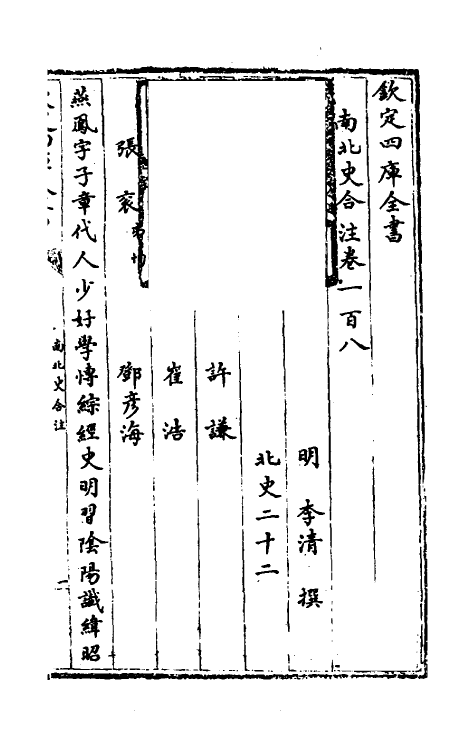 欽定四庫全書
南北史合注卷一百八
明 李清 撰
北史二十二
許謙
崔浩
張袞 鄧彦海
燕鳳字子章代人少好學博綜經史明習陰陽讖緯昭
南北史合注
一